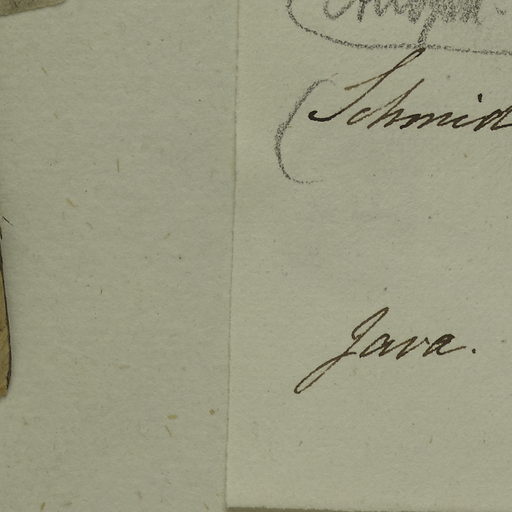 Schmid
Java.